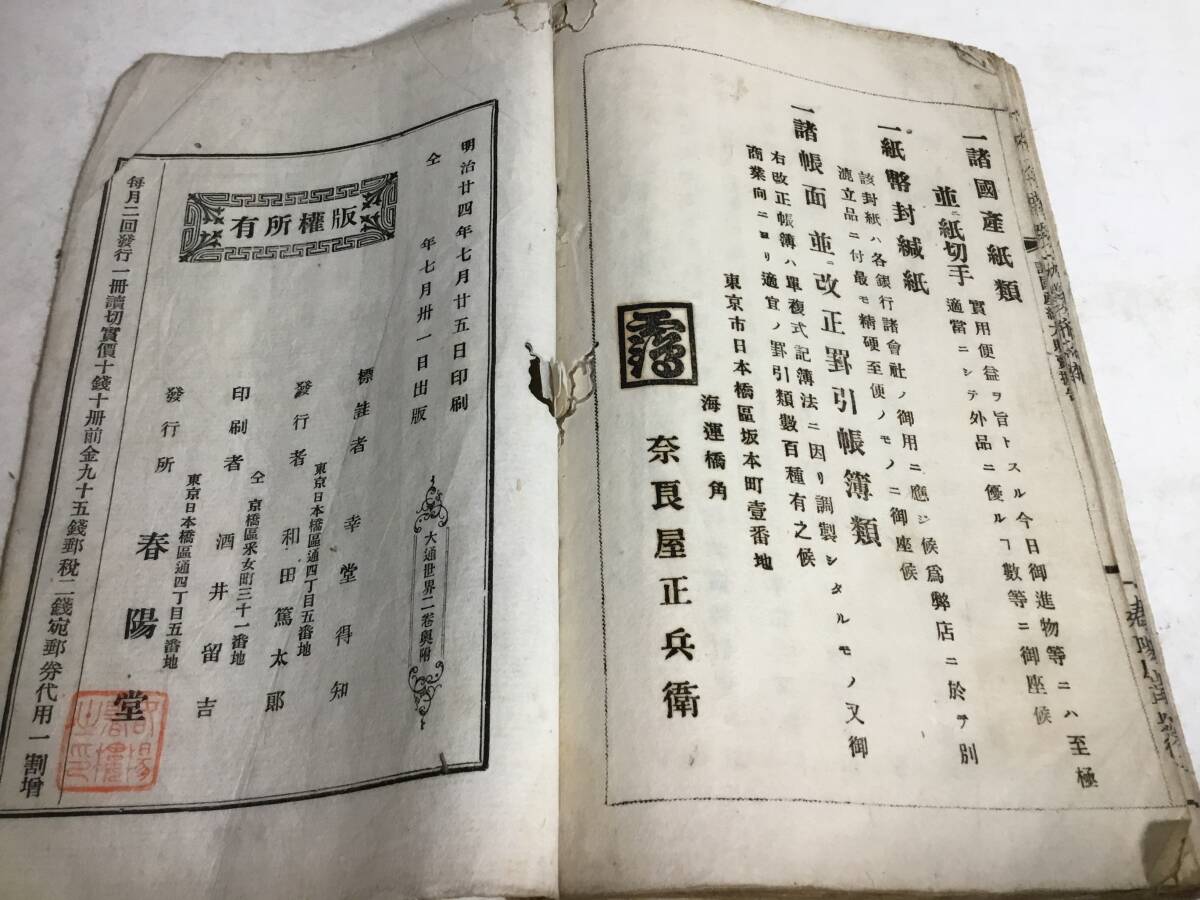 一諸國產紙類
並ニ紙切手
實用便益ヲ旨トスル今日御進物等ニハ至極
適當ニシテ外品ニ優ルヿ數等ニ御座候
一紙幣封緘紙
該封紙ハ各銀行諸會社ノ御用ニ應シ候爲弊店ニ於テ別
漉立品ニ付最モ精硬至便ノモノニ御座候
一諸帳面並ニ改正罫引帳簿類
右改正帳簿ハ單複式記簿法ニ因リ調製シタルモノ又御
商業向ニヨリ適宜ノ罫引類數百種有之候
東京市日本橋區坂本町壹番地
海運橋角
奈良屋正兵衛
明治廿四年七月廿五日印刷
仝 年七月卅一日出版
大通世界二卷奧附
版權所有
標註者 幸堂得知
東京日本橋區通四丁目五番地
發行者 和田篤太郎
仝 京橋區釆女町三十一番地
印刷者 酒井留吉
東京日本橋區通四丁目五番地
發行所 春陽堂
每月二回發行一冊讀切實價十錢十冊前金九十五錢郵稅二錢宛郵券代用一割增